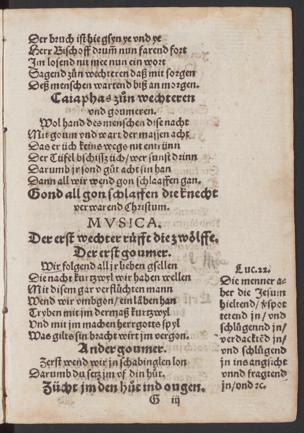 Der bruch ist hie gsyn ye vnd ye
Herr Bischoff drum̃ nun farend fort
Im losend nit mee nun ein wort
Sagend zůn wechteren daß mit sorgen
Deß menschen wartend biß an morgen.
Caiaphas zůn wechteren
vnd goumeren.
Wol hand des menschen dise nacht
Mit goum vnd wart der massen acht
Das er üch keins wegs nit entrünn
Der Tüfel bschissz üch / wer sunst drinn
Darumb jr sond gůt acht sin han
Dann all wir wend gon schlaaffen gan.
Gond all gon schlaffen die knecht
verwarend Christum.
MVSICA.
Der erst wechter rüfft die zwölffe.
Der erst goumer.
Wir folgend all jr lieben gsellen
Die nacht kurtzwyl wir haben wellen
Mit disem gar verflůchten mann
Wend wir vmbgon / ein läben han
Tryben mit jm dermaß kurtzwyl
Vnd mit jm machen herrgotts spyl
Was gilts sin bracht wirt jm vergon.
Ander goumer.
Zerst wend wir jn schabinglen lon
Darumb du setz jm vf din hůt.
Zücht jm den hůt ind ougen.
G iij
Luc. 22.
Die menner a-
ber die Jesum
hieltend / vspot
tetend jn / vnd
schlůgennd jn /
verdacktẽd jn /
vnd schlůgend
jn ins angsicht
vnnd fragtend
jn / vnd ꝛc.